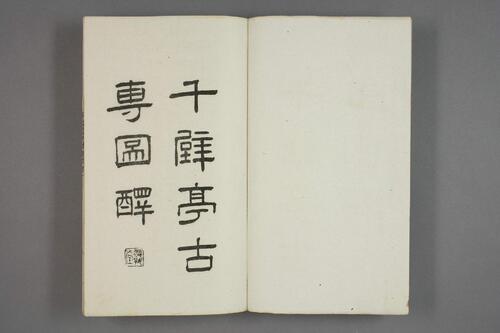 千甓亭古
專圖醳